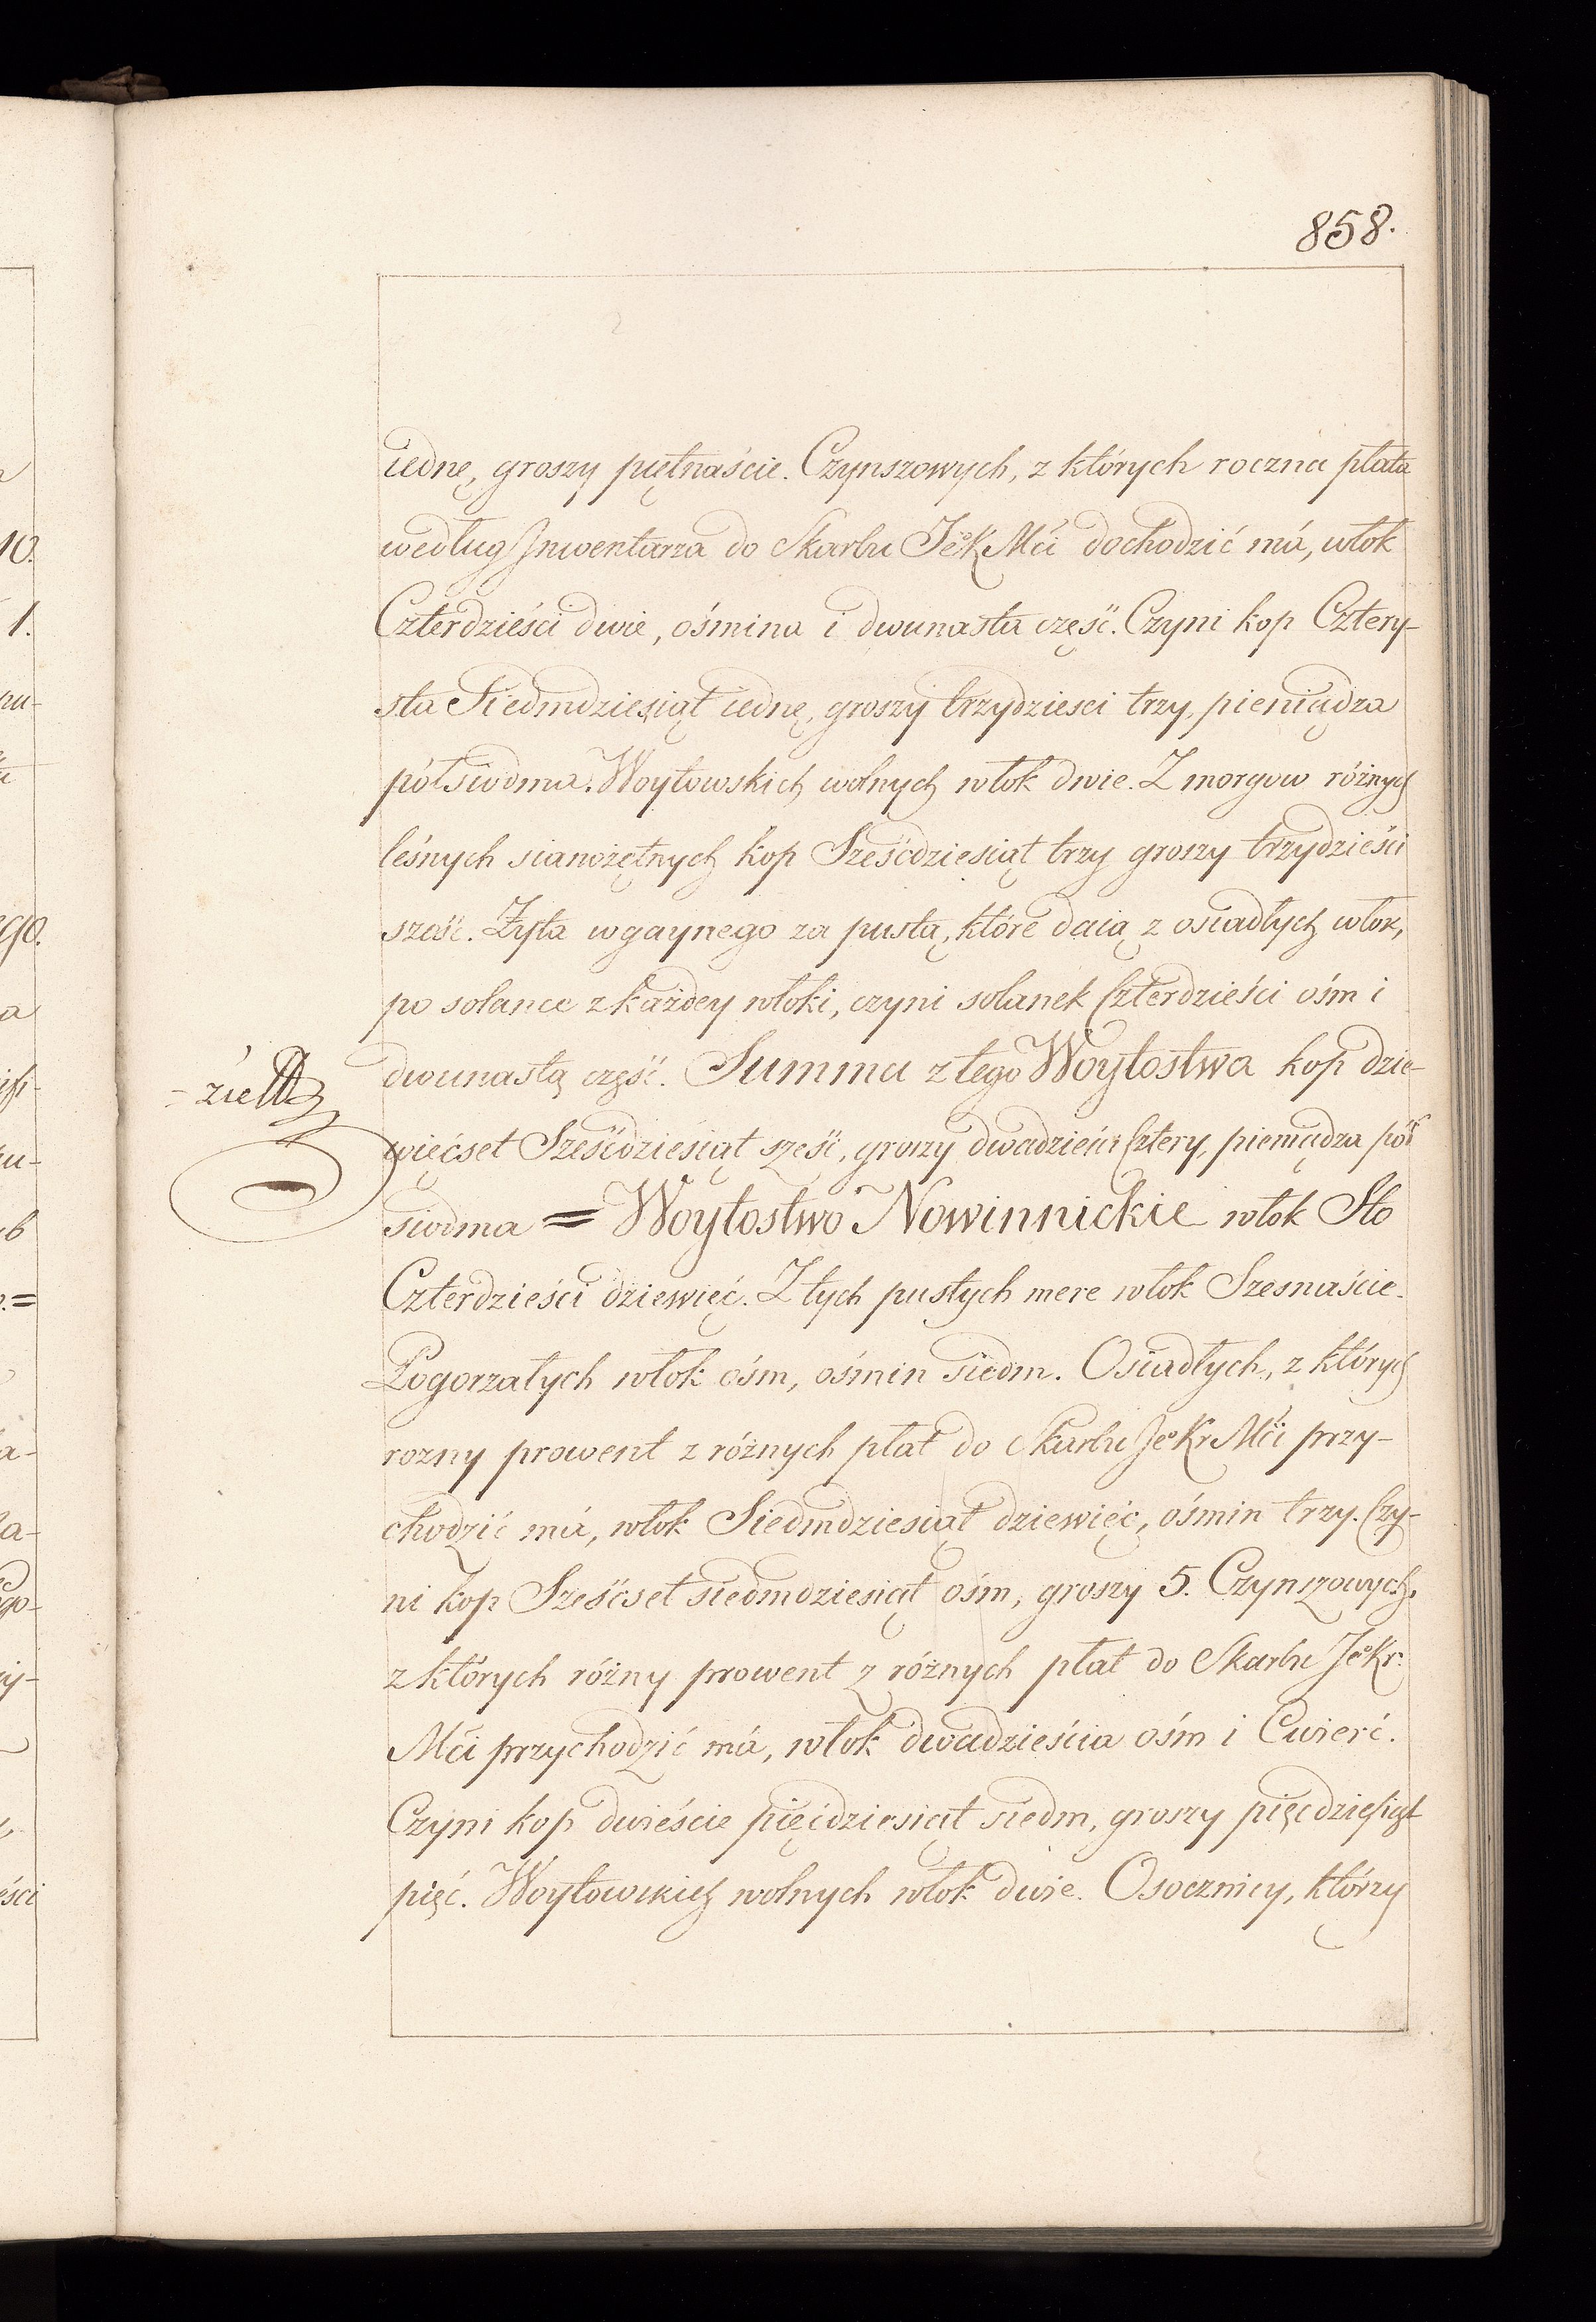 858.
iednę, groszy piętnaście. Czynszowych, z których roczna płata
według Jnwentarza do Skarbu JeoKMći dochodzić má, włok
Czterdzieści dwie, ośmina i dwunasta część. Czyni kop Cztery-
sta Siedmdziesiąt iednę, groszy trzydziesci trzy, pieniądza
półsiodma. Woytowskich wolnych włok dwie. Z morgow różnych
leśnych sianożętnych kop Sześćdziesiąt trzy groszy trzydzieści
sześć. Żyta wgaynego za pustą, które daią z osiadłych włok,
po solance z każdey włoki, czyni solanek Czterdzieści ośm i
dwunastą część. Summa z tego Woytostwa kop dzie-
więćset Sześćdziesiąt sześć, groszy dwadzieścia Cztery, pieniądza pół
siodma = Woytostwo Nowinnickie włok Sto
Czterdzieści dziewięć. Z tych pustych mere włok Szesnaście.
Pogorzałych włok ośm, ośmin siedm. Osiadłych, z których
rozny prowent z różnych płat do Skarbu JeoKrMći przy-
chodzić má, włok Siedmdziesiąt dziewięć, ośmin trzy. Czy-
ni kop Sześćset siedmdziesiąt ośm, groszy 5. Czynszowych,
z których różny prowent z różnych płat do Skarbu JeoKr.
Mći przychodzić má, włok dwadzieścia ośm i Cwierć.
Czyni kop dwieście pięćdziesiąt siedm, groszy pięcdziesiąt
pięć. Woytowskich wolnych włok dwie. Osocznicy, którzy